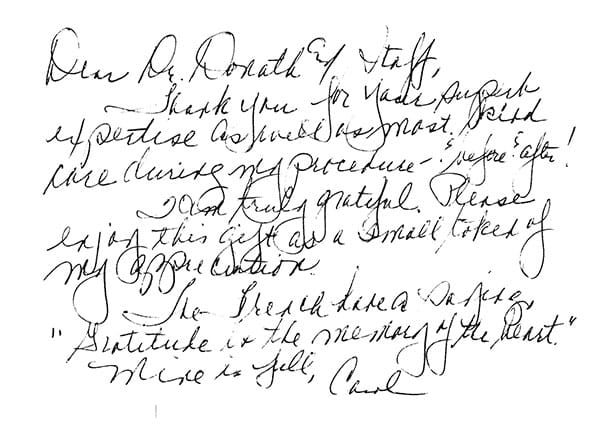 Dear Dr. Donath & Staff,
Thank you for your superb
expertise as well as most kind
care during my procedure - & before & after!
I am truly grateful. Please
enjoy this gift as a small token of
my appreciation.
The French have a saying,
"Gratitude is the memory of the heart."
Mine is full, Carol